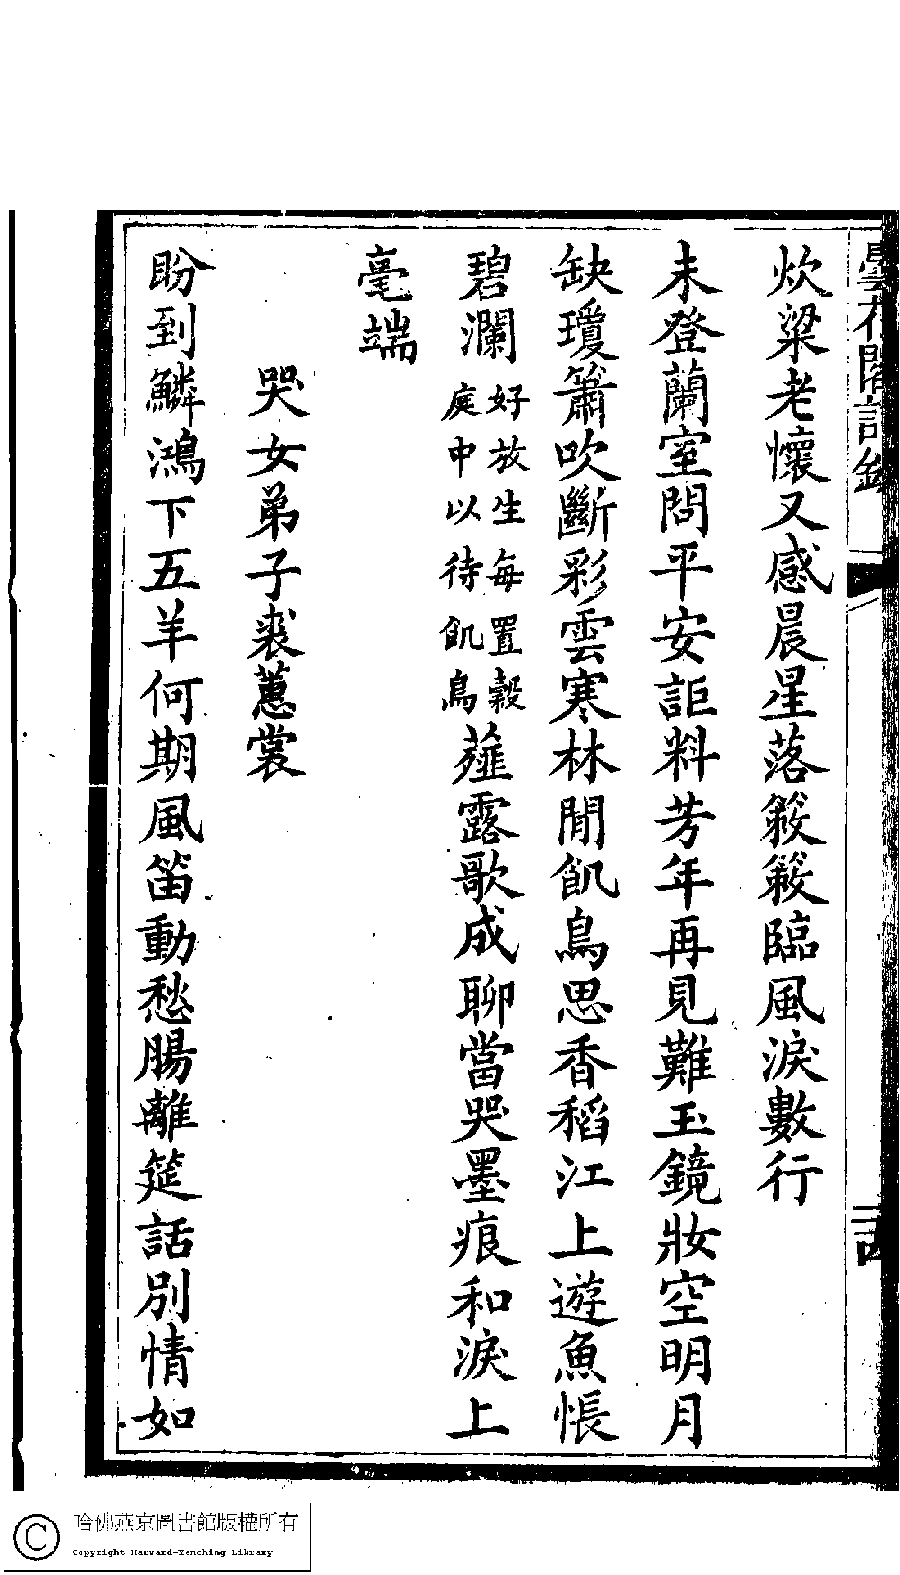 曇花閣詩鈔
炊粱老懷又感晨星落簌簌臨風淚數行
未登蘭室問平安詎料芳年再見難玉鏡妝空明月
缺瓊簫吹斷彩雲寒林閒飢鳥思香稻江上遊魚悵
碧瀾
好放生每置穀
庭中以待飢鳥
薤露歌成聊當哭墨痕和淚上
毫端
哭女弟子裘蕙裳
盼到鱗鴻下五羊何期風笛動愁腸離筵話別情如
哈佛燕京圖書館版權所有
Copyright Harvard-Yenching Library